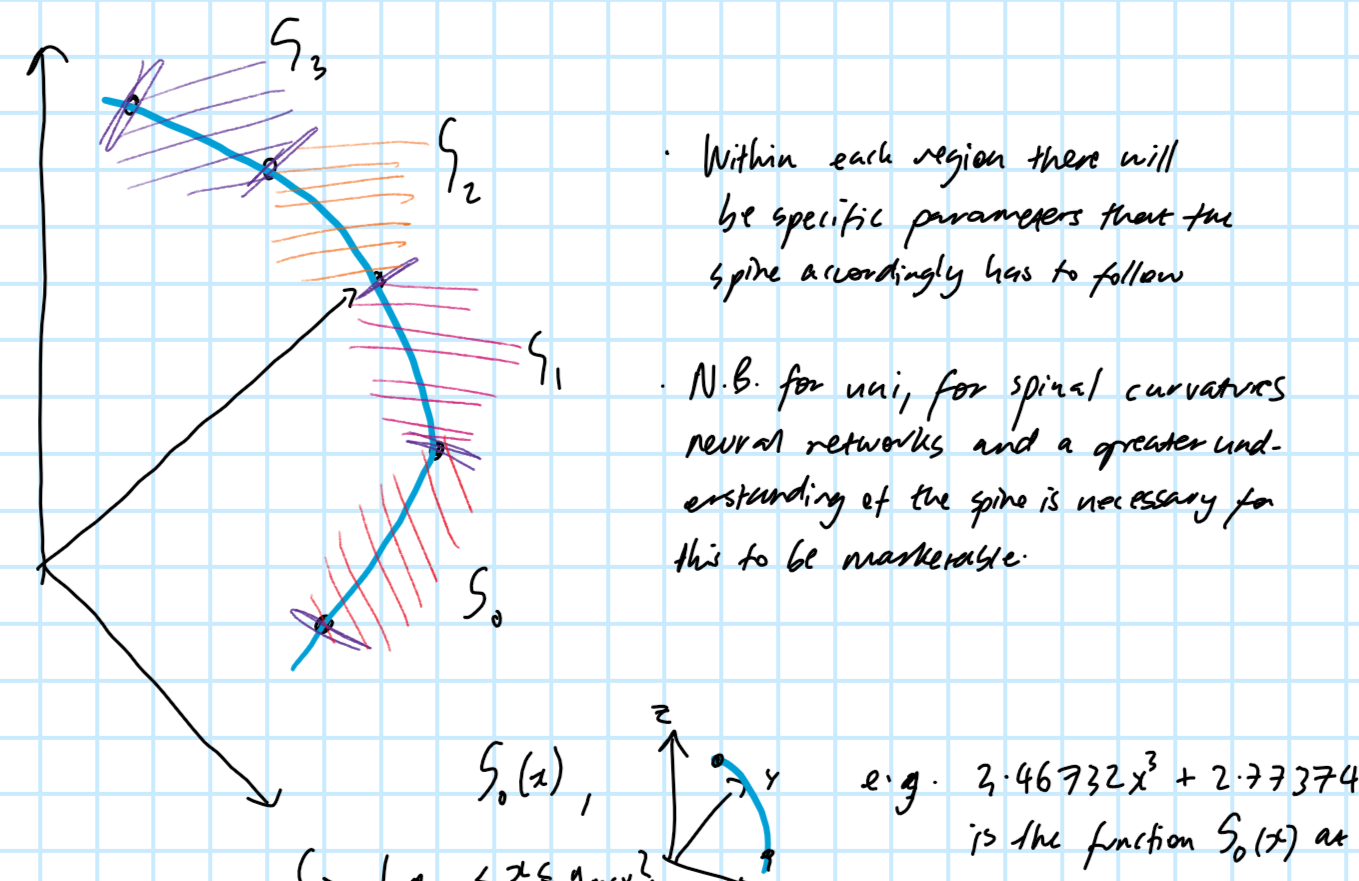 S₃
S₂
· Within each region there will
be specific parameters that the
spine accordingly has to follow
S₁
· N.B. for uni, for spinal curvatures
neural networks and a greater und-
erstanding of the spine is necessary for
this to be marketable.
S₀
z
S₀(x),
y
e.g. 2.46732x³ + 2.77374
is the function S₀(x) at